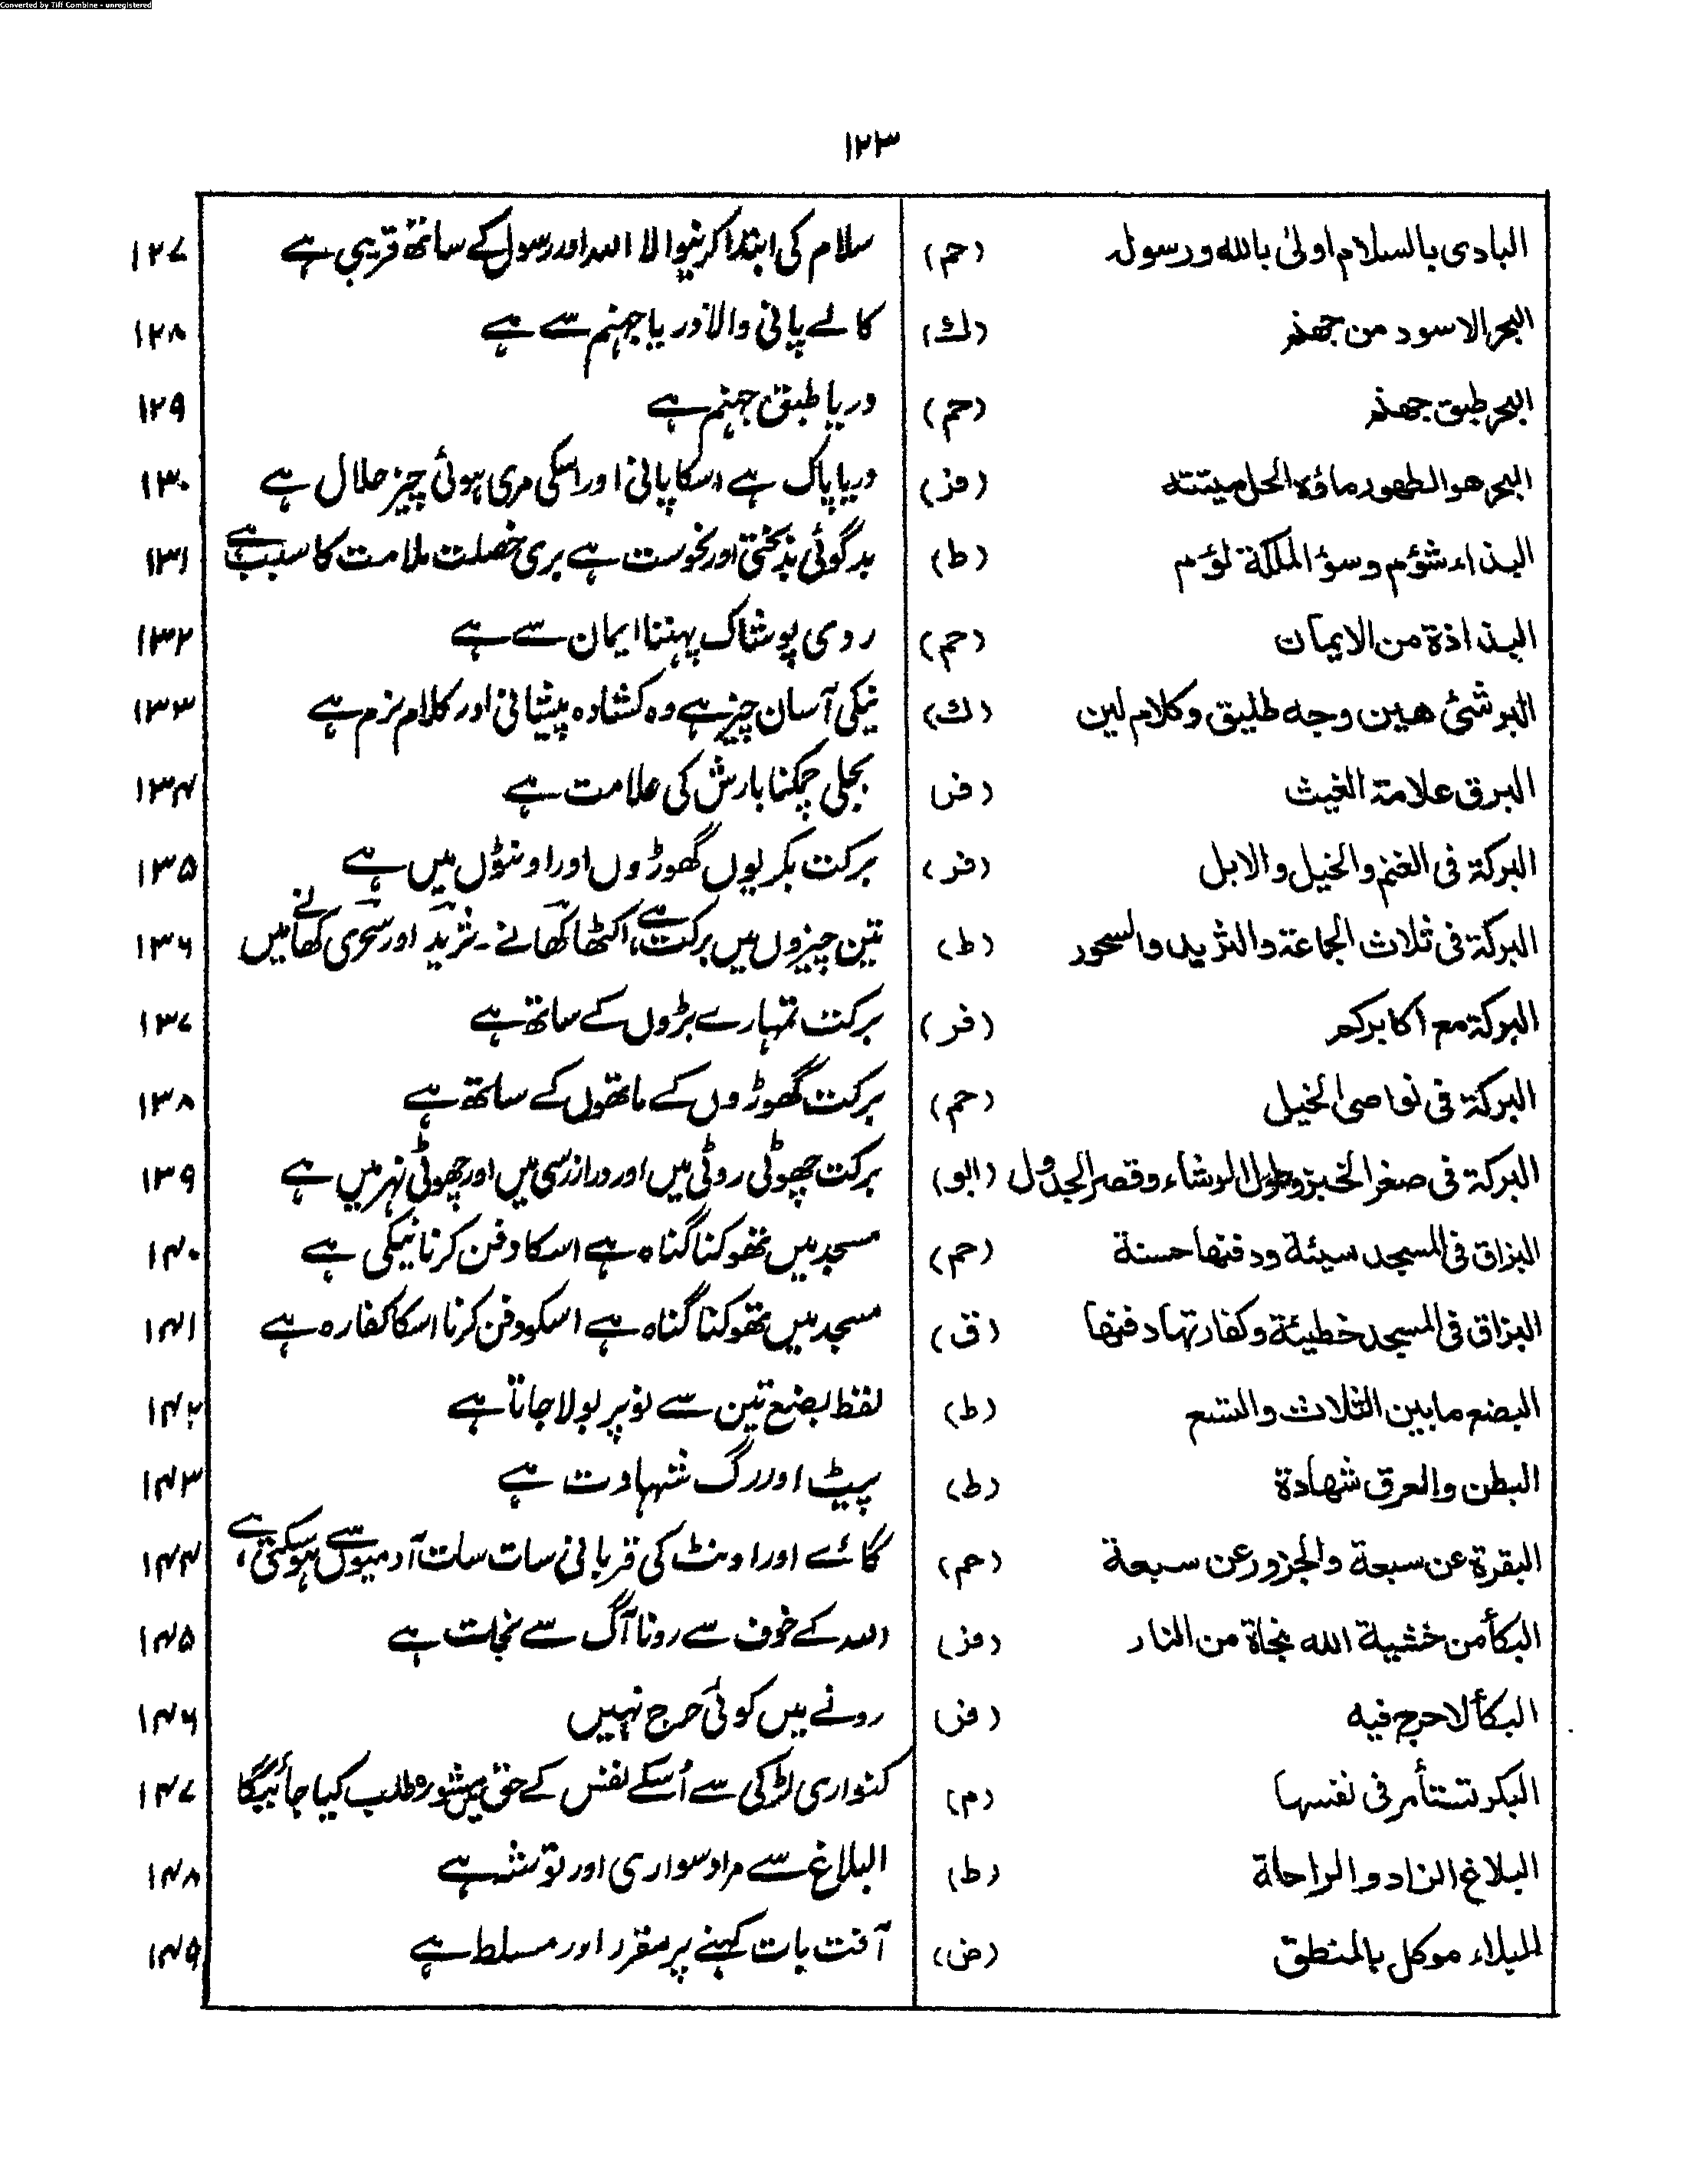 Converted by Tiff Combine - unregistered
۱۲۳
البادی بالسلام اولیٰ باللہ ورسولہ (حم) سلام کی ابتدا کرنیوالا اللہ اور رسول کے ساتھ قریبی ہے ۱۲۷
البحر الاسود من جھنم (ك) کالے پانی والا دریا جہنم سے ہے ۱۲۸
البحر طبق جھنم (حم) دریا طبق جہنم ہے ۱۲۹
البحر ھو الطھور ماؤہ الحل میتتہ (فز) دریا پاک ہے اسکا پانی اور اسکی مری ہوئی چیز حلال ہے ۱۳۰
البذاء شؤم وسؤ الملکة لؤم (ط) بدگوئی بدبختی اور نحوست ہے بری خصلت ملامت کا سبب ہے ۱۳۱
البذاذة من الایمان (حم) ردی پوشاک پہننا ایمان سے ہے ۱۳۲
البر شئ ھین وجہ طلیق وکلام لین (ك) نیکی آسان چیز ہے وہ کشادہ پیشانی اور کلام نرم ہے ۱۳۳
البرق علامة الغیث (فر) بجلی چمکنا بارش کی علامت ہے ۱۳۴
البرکة فی الغنم والخیل والابل (فر) برکت بکریوں گھوڑوں اور اونٹوں میں ہے ۱۳۵
البرکة فی ثلاث الجماعة والثرید والسحور (ط) تین چیزوں میں برکت ہے، اکٹھا کھانے ۔ ثرید اور سحری کھانے میں ۱۳۶
البرکة مع اکابرکم (فر) برکت تمہارے بڑوں کے ساتھ ہے ۱۳۷
البرکة فی نواصی الخیل (حم) برکت گھوڑوں کے ماتھوں کے ساتھ ہے ۱۳۸
البرکة فی صغر الخبز وطول الرشاء وقصر الجدول (ابو) برکت چھوٹی روٹی میں اور دراز رسی میں اور چھوٹی نہر میں ہے ۱۳۹
البزاق فی المسجد سیئة ودفنھا حسنة (حم) مسجد میں تھوکنا گناہ ہے اسکا دفن کرنا نیکی ہے ۱۴۰
البزاق فی المسجد خطیئة وکفارتہا دفنھا (ق) مسجد میں تھوکنا گناہ ہے اسکو دفن کرنا اسکا کفارہ ہے ۱۴۱
البضع مابین الثلاث والتسع (ط) لفظ بضع تین سے نو پر بولا جاتا ہے ۱۴۲
البطن والعرق شھادة (ط) پیٹ اور رگ شہادت ہے ۱۴۳
البقرة عن سبعة والجزور عن سبعة (حم) گائے اور اونٹ کی قربانی سات سات آدمیوں سے ہو سکتی ہے، ۱۴۴
البکأ من خشیة اللہ نجاة من النار (فز) اللہ کے خوف سے رونا آگ سے نجات ہے ۱۴۵
البکأ لا حرج فیہ (فر) رونے میں کوئی حرج نہیں ۱۴۶
البکر تستأمر فی نفسہا (م) کنواری لڑکی سے اُسکے نفس کے حق میں مشورہ طلب کیا جائیگا ۱۴۷
البلاغ الزاد والراحلة (ط) البلاغ سے مراد سواری اور توشہ ہے ۱۴۸
البلاء موکل بالمنطق (ض) آفت بات کہنے پر مقرر اور مسلط ہے ۱۴۹